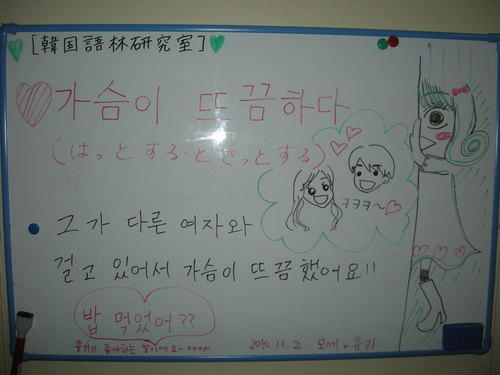 [韓国語林研究室]
가슴이 뜨끔하다
(はっとする・どきっとする)
ㅋㅋㅋ~♡
그가 다른 여자와
걷고 있어서 가슴이 뜨끔했어요!!
밥 먹었어??
유키가 좋아하는 말이에요~ ㅋㅋㅋ
2010.11.2 모에・유키